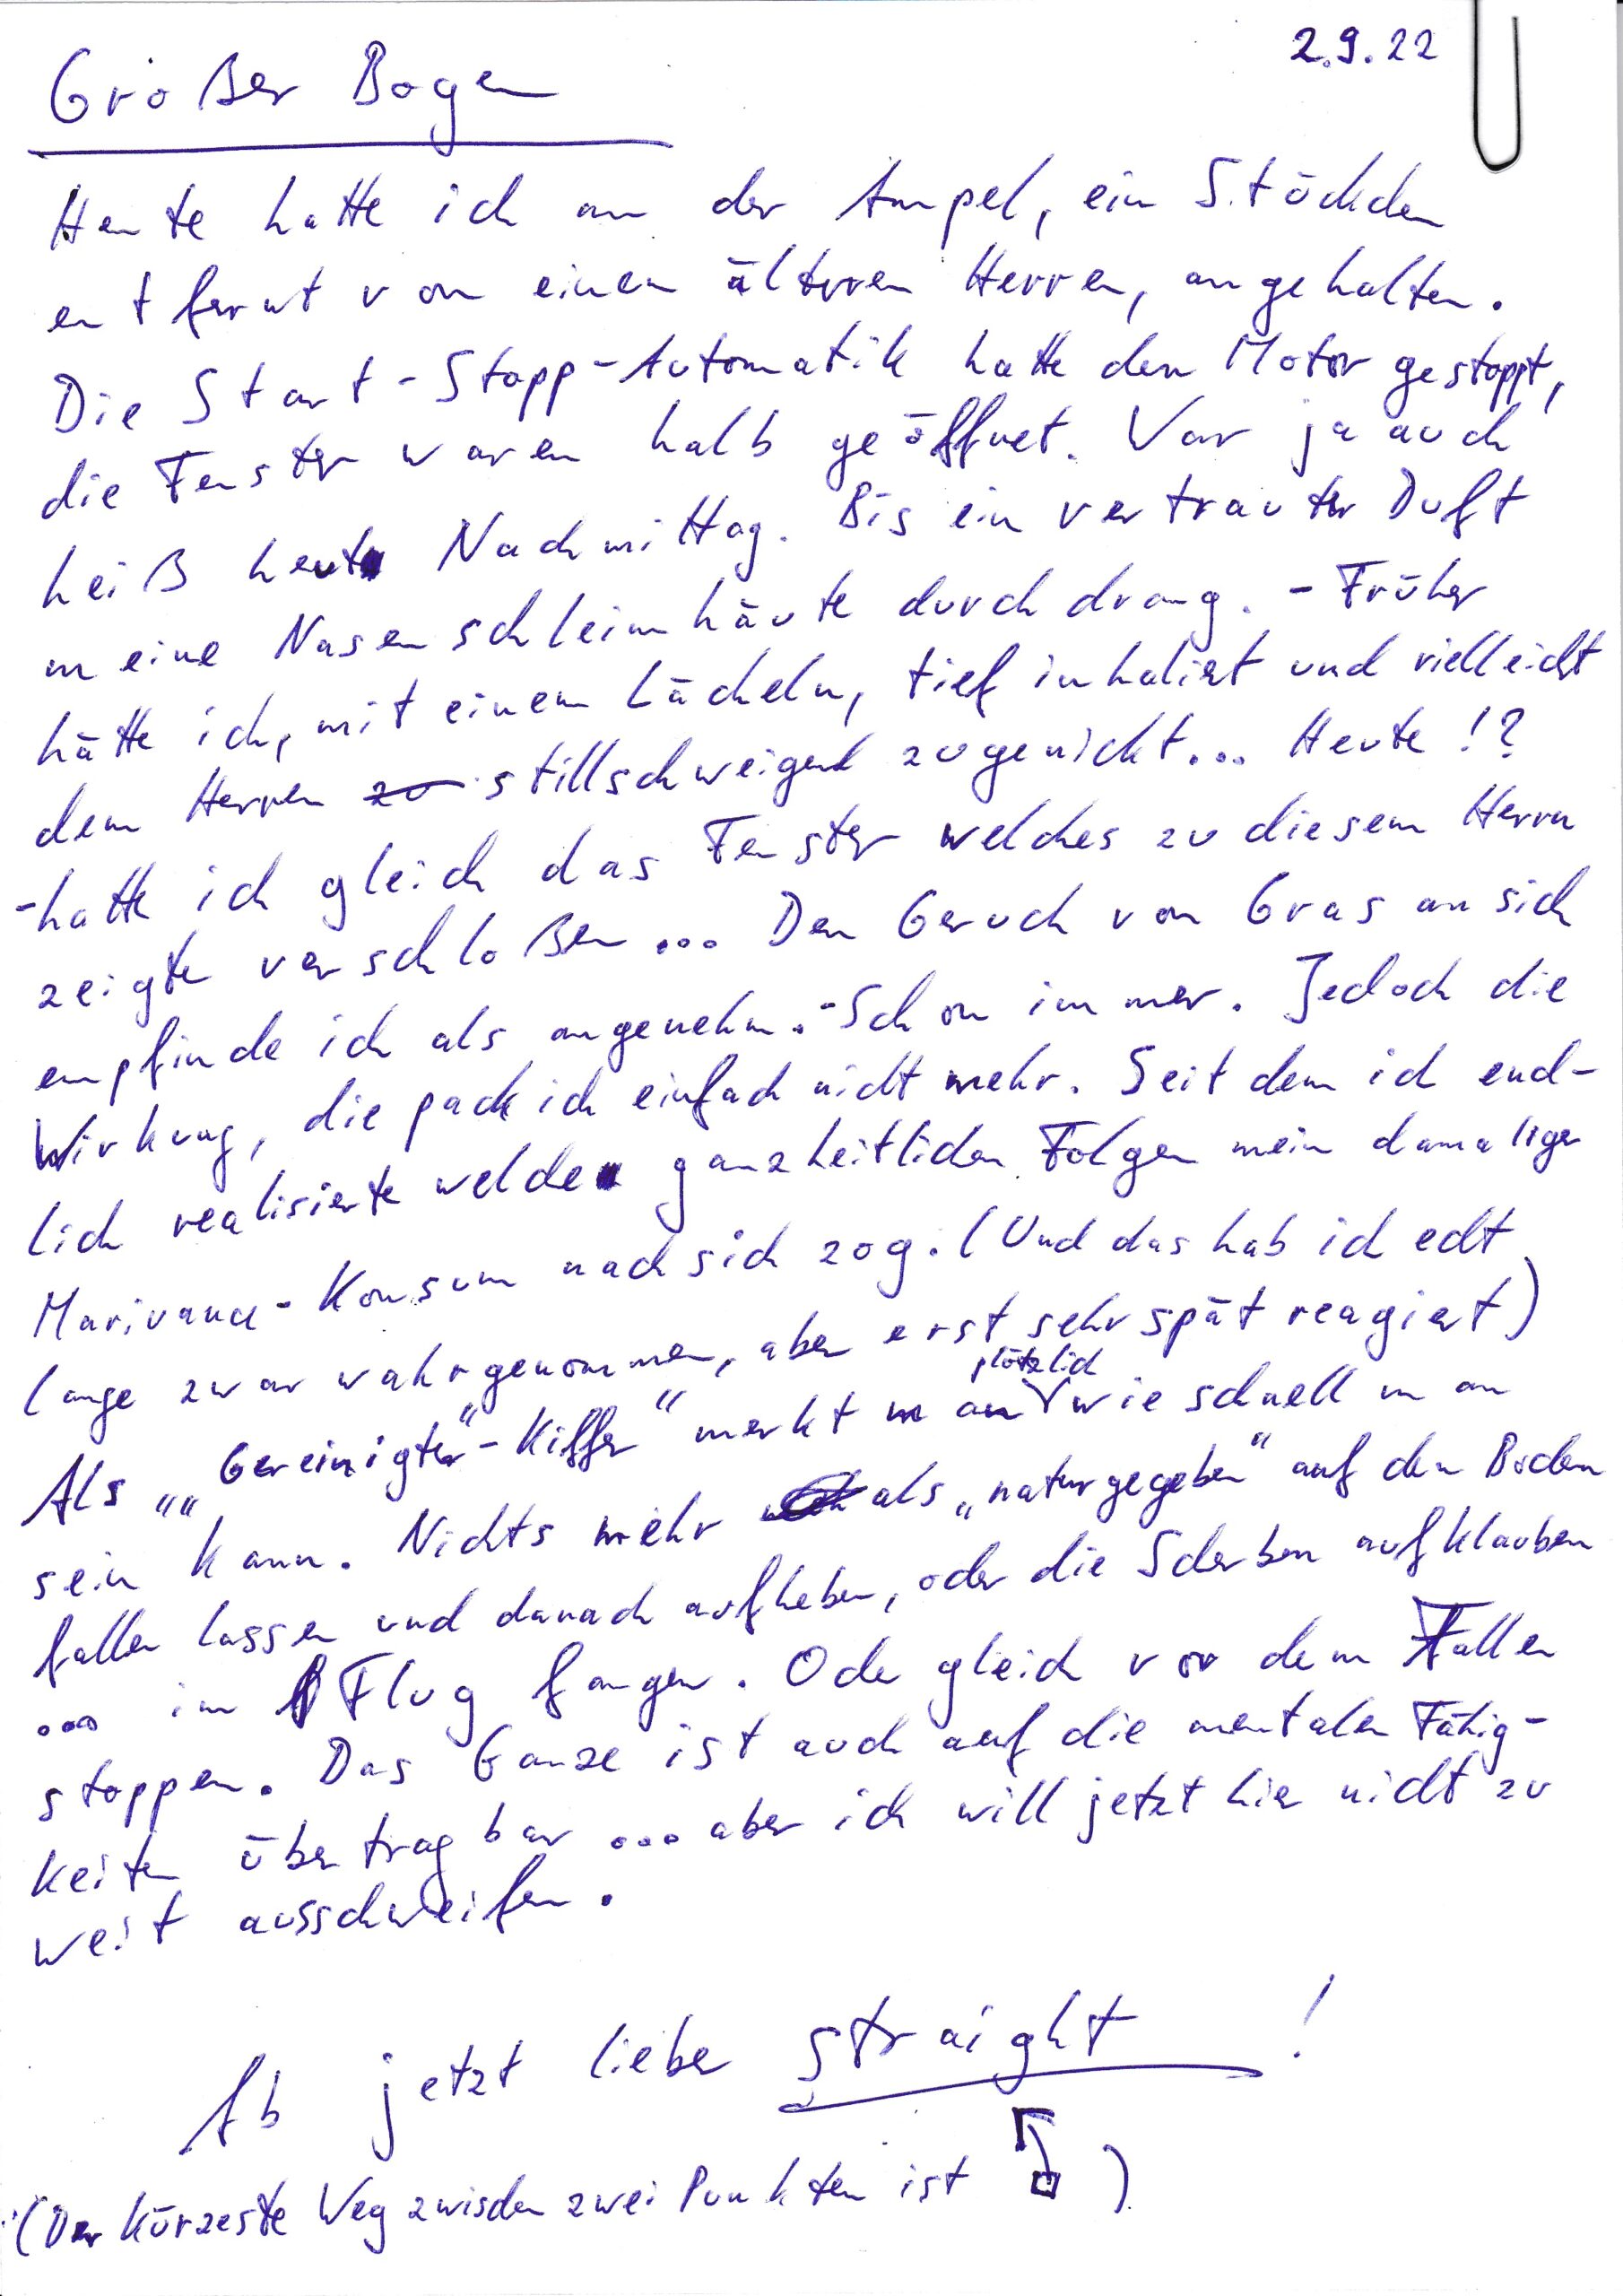 2.9.22
Großer Bogen
Heute hatte ich an der Ampel, ein Stöckchen
entfernt von einem älteren Herren, angehalten.
Die Start-Stopp-Automatik hatte den Motor gestoppt,
die Fenster waren halb geöffnet. War ja auch
heiß heute Nachmittag. Bis ein vertrauter Duft
meine Nasenschleimhäute durchdrang. - Früher
hätte ich, mit einem Lächeln, tief inhaliert und vielleicht
dem Herren zu stillschweigend zugenickt... Heute!?
-hatte ich gleich das Fenster welches zu diesem Herrn
zeigte verschloßen... Den Geruch von Gras an sich
empfinde ich als angenehm.-Schon immer. Jedoch die
Wirkung, die pack ich einfach nicht mehr. Seit dem ich end-
lich realisierte welche ganzheitlichen Folgen mein damaliger
Marivana-Konsum nach sich zog. (Und das hab ich echt
lange zwar wahrgenommen, aber erst sehr spät reagiert)
Als „„Gereinigter"-Kiffer" merkt man plötzlich wie schnell man
sein kann. Nichts mehr als „naturgegeben" auf den Boden
fallen lassen und danach aufheben, oder die Scherben aufklauben
... im Flug fangen. Oder gleich vor dem Fallen
stoppen. Das Ganze ist auch auf die mentalen Fähig-
keiten übertragbar ... aber ich will jetzt hier nicht zu
weit ausschweifen.
Ab jetzt lieber straight!
(Der kürzeste Weg zwischen zwei Punkten ist )